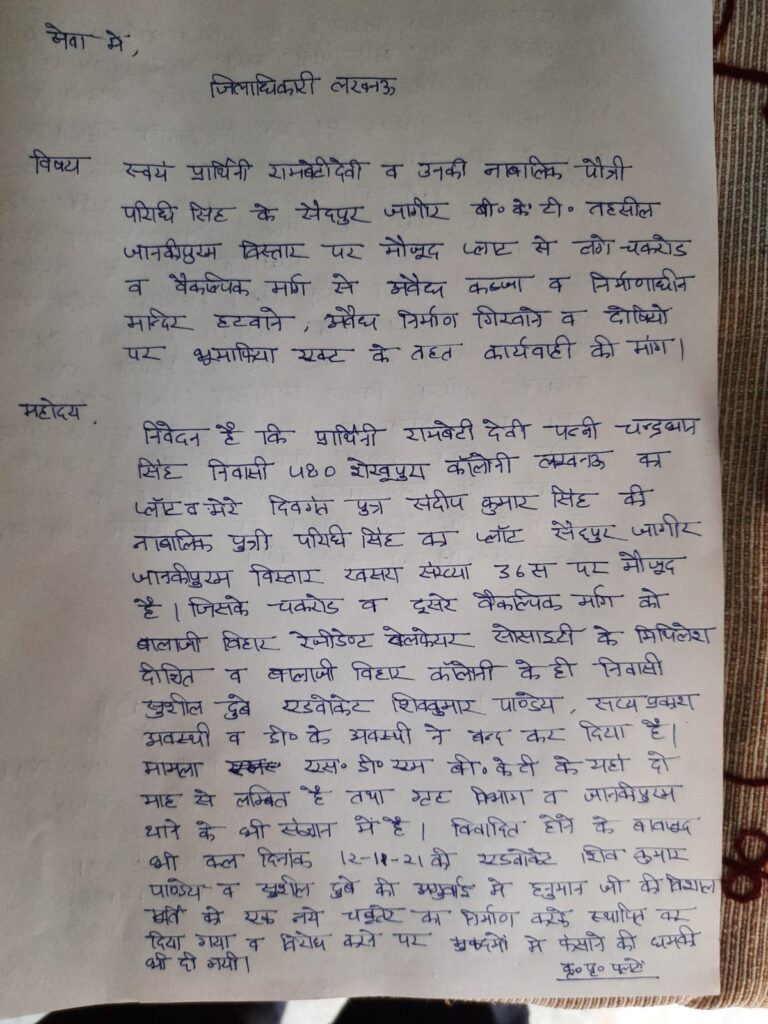 सेवा में,
जिलाधिकारी लखनऊ
विषय स्वयं प्रार्थिनी रामबेटीदेवी व उनकी नाबालिक पौत्री
परिधि सिंह के सैदपुर जागीर बी० के० टी० तहसील
जानकीपुरम विस्तार पर मौजूद प्लाट से लगे चकरोड
व वैकल्पिक मार्ग से अवैध कब्जा व निर्माणाधीन
मन्दिर हटवाने, अवैध निर्माण गिरवाने व दोषियो
पर भूमाफिया एक्ट के तहत कार्यवाही की मांग।
महोदय,
निवेदन है कि प्रार्थिनी रामबेटी देवी पत्नी चन्द्रभान
सिंह निवासी 480 शेखूपुरा कॉलोनी लखनऊ का
प्लॉट व मेरे दिवगंत पुत्र संदीप कुमार सिंह की
नाबालिक पुत्री परिधि सिंह का प्लॉट सैदपुर जागीर
जानकीपुरम विस्तार खसरा संख्या 36स पर मौजूद
है। जिसके चकरोड व दूसरे वैकल्पिक मार्ग को
बालाजी विहार रेजीडेण्ट वेलफेयर सोसाइटी के मिथिलेश
दीक्षित व बालाजी विहार कॉलोनी के ही निवासी
सुशील दुबे एडवोकेट शिवकुमार पाण्डेय, सत्य प्रकाश
अवस्थी व डी० के अवस्थी ने बन्द कर दिया है।
मामला एस० डी० एम बी० के टी के यहां दो
माह से लम्बित है तथा गृह विभाग व जानकीपुरम
थाने के भी संज्ञान में है। विवादित होने के बावजूद
भी कल दिनांक 12-11-21 को एडवोकेट शिव कुमार
पाण्डेय व सुशील दुबे की अगुवाई मे हनुमान जी की विशाल
मूर्ति को एक नये चबूतरे का निर्माण करके स्थापित कर
दिया गया व विरोध करने पर मुकदमों मे फंसाने की धमकी
भी दी गयी।
कृ० पृ० पलटें